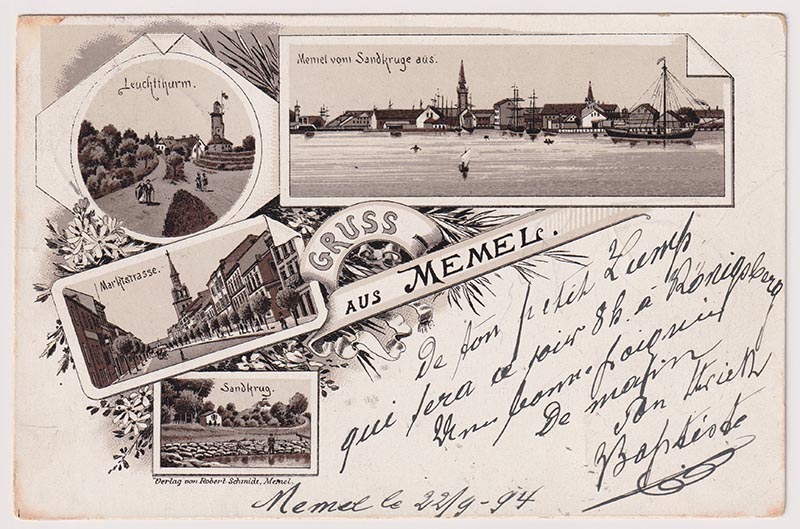 Leuchtthurm.
Memel vom Sandkruge aus.
GRUSS
AUS MEMEL.
Marktstrasse.
Sandkrug.
Verlag von Robert Schmidt, Memel.
De ton petit Lump
qui sera ce soir 8h. à Königsberg
Une bonne
De
Ton
Baptiste
Memel le 22/9-94